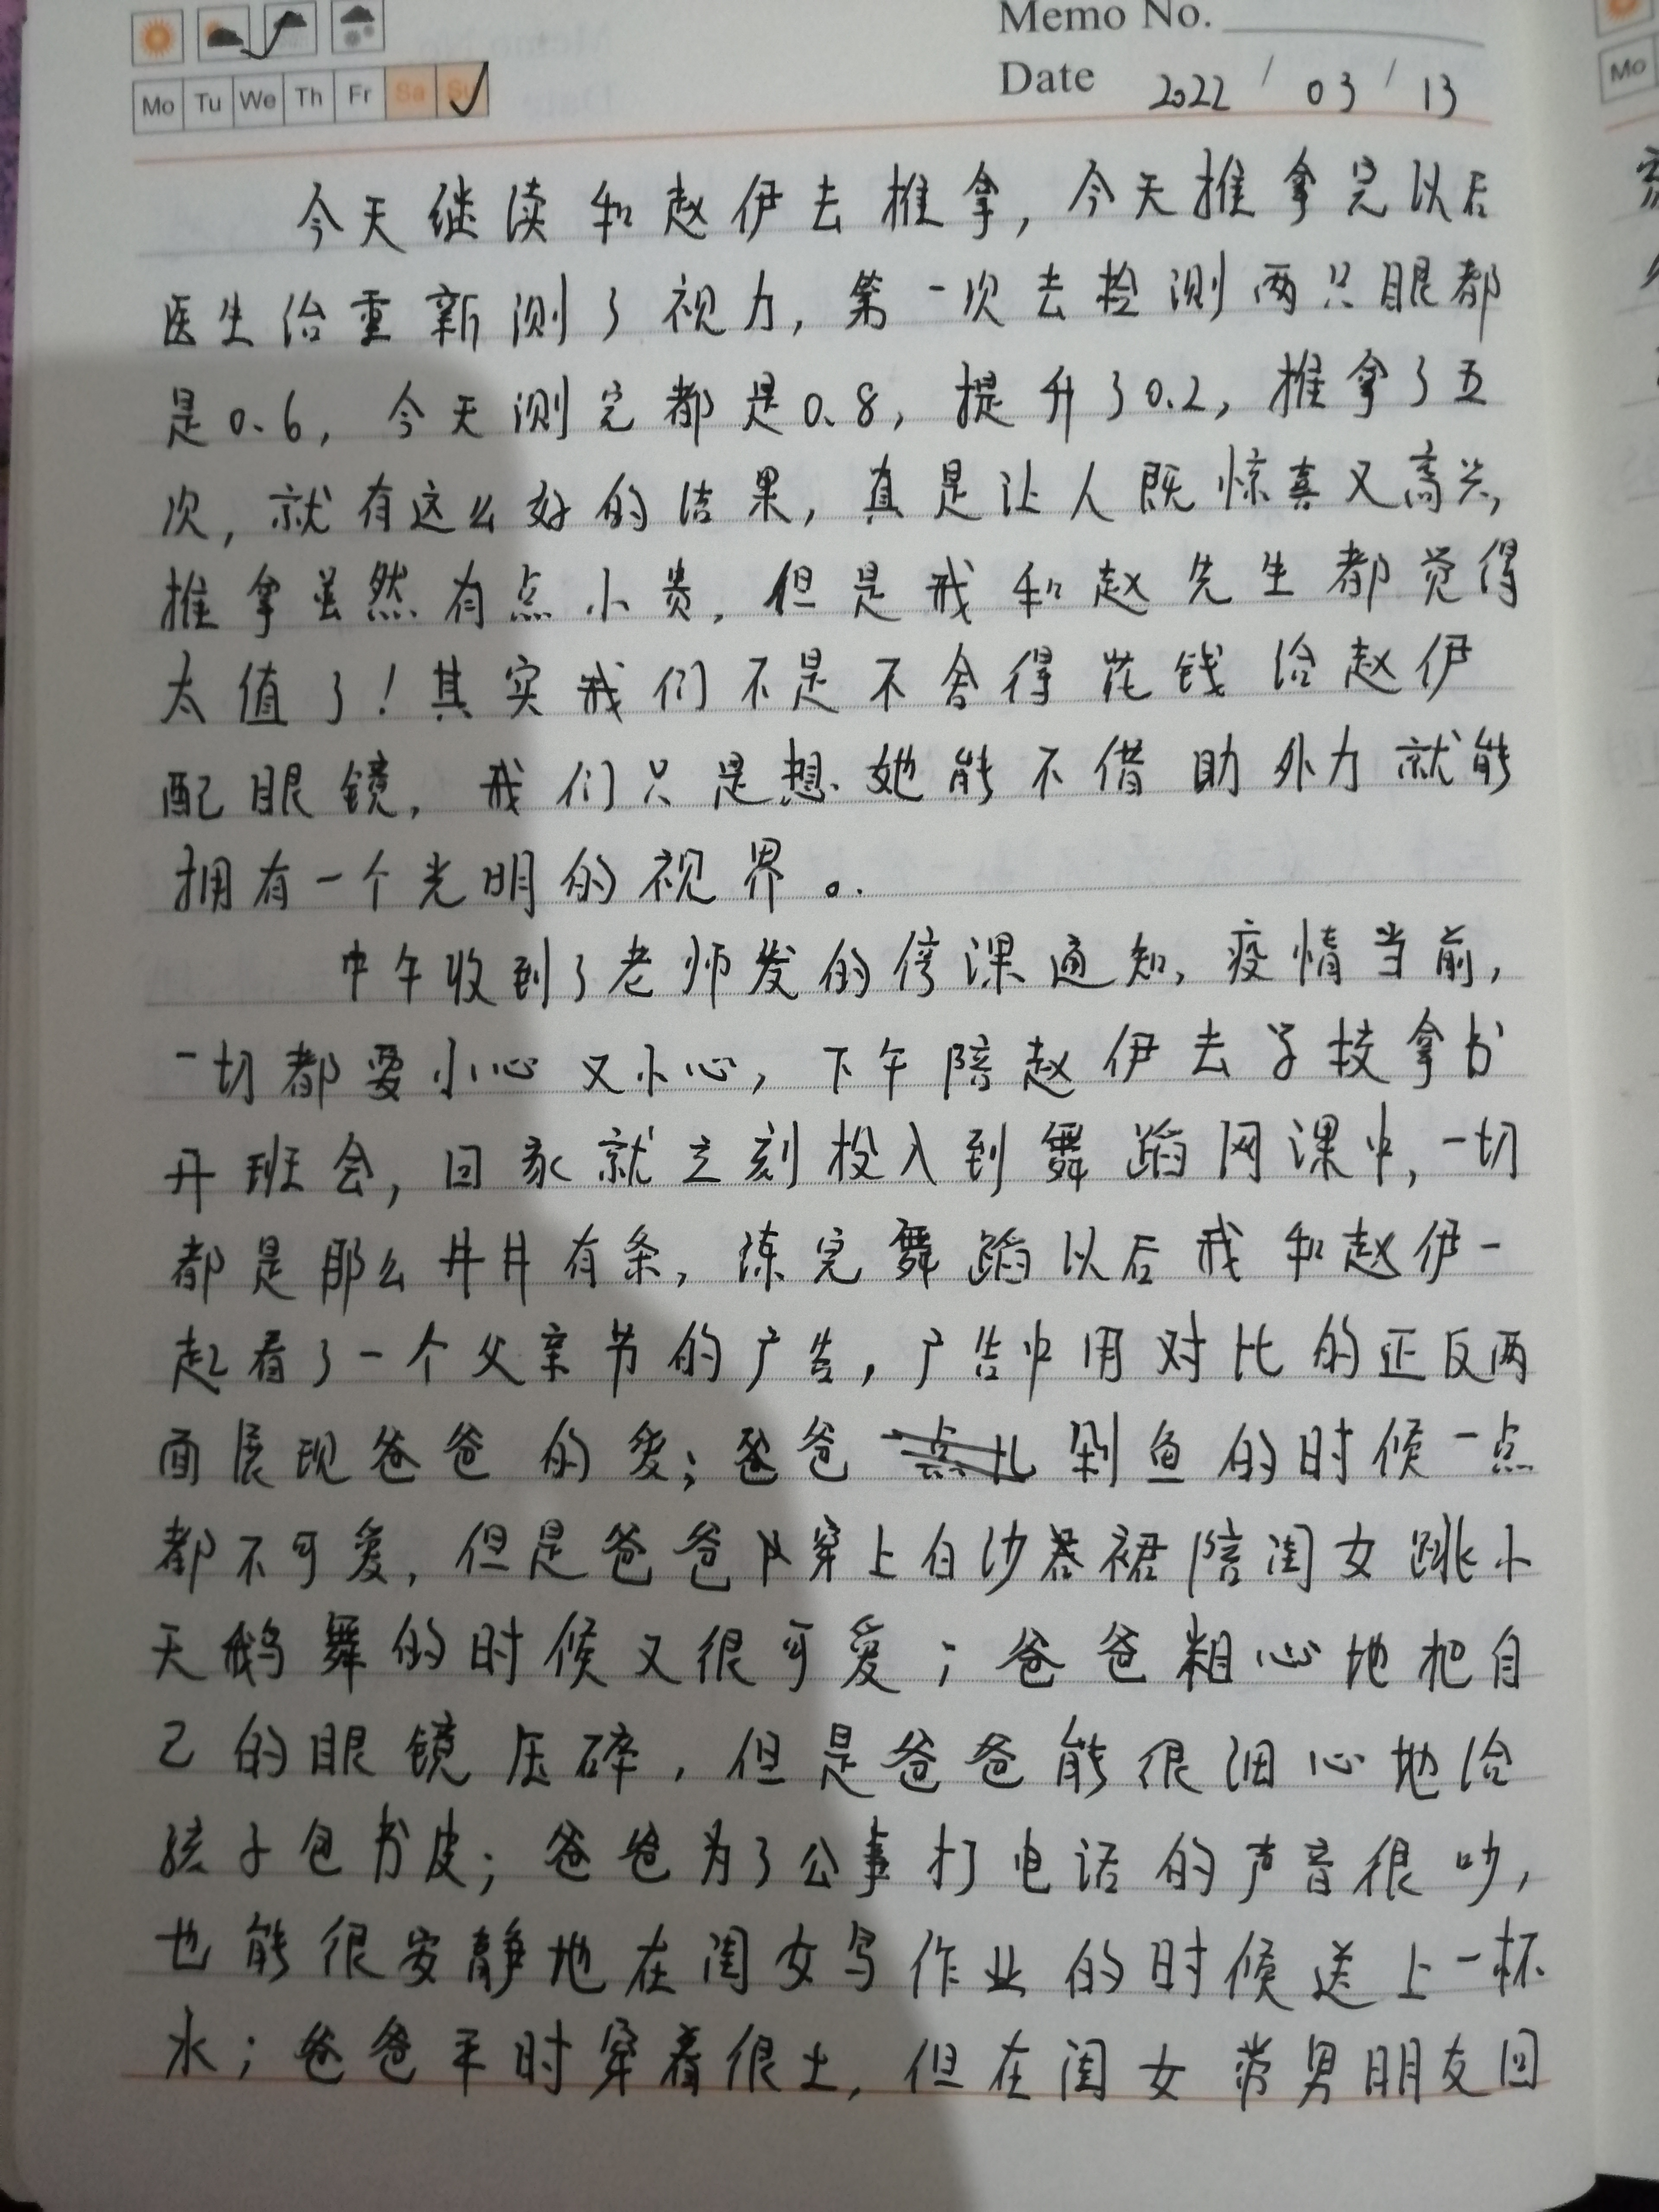 Memo No.
Mo Tu We Th Fr Sa Su
Date 2022 / 03 / 13
今天继续和赵伊去推拿，今天推拿完以后
医生给重新测了视力，第一次去检测两只眼都
是0.6，今天测完都是0.8，提升了0.2，推拿了五
次，就有这么好的结果，真是让人既惊喜又高兴，
推拿虽然有点小贵，但是我和赵先生都觉得
太值了！其实我们不是不舍得花钱给赵伊
配眼镜，我们只是想她能不借助外力就能
拥有一个光明的视界。
中午收到了老师发的停课通知，疫情当前，
一切都要小心又小心，下午陪赵伊去学校拿书
开班会，回家就立刻投入到舞蹈网课中，一切
都是那么井井有条，练完舞蹈以后我和赵伊一
起看了一个父亲节的广告，广告中用对比的正反两
面展现爸爸的爱；爸爸剁鱼的时候一点
都不可爱，但是爸爸穿上白沙裙陪闺女跳小
天鹅舞的时候又很可爱；爸爸粗心地把自
己的眼镜压碎，但是爸爸能很细心地给
孩子包书皮；爸爸为了公事打电话的声音很吵，
也能很安静地在闺女写作业的时候送上一杯
水；爸爸平时穿着很土，但在闺女带男朋友回
Mo